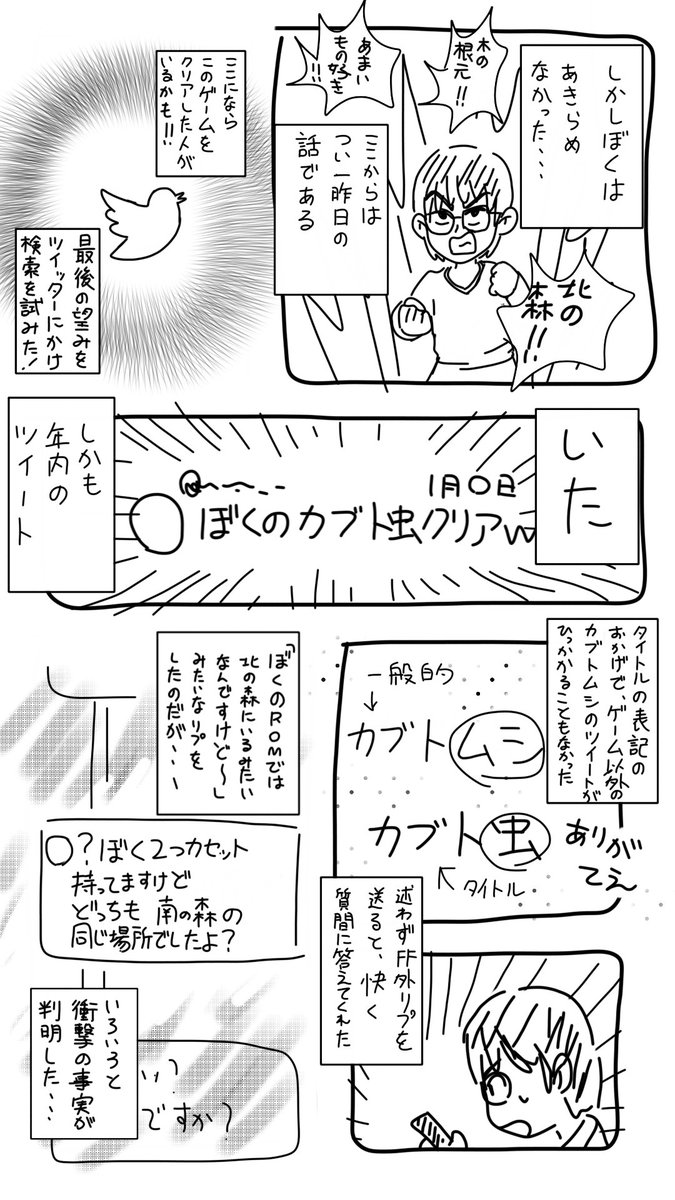 しかしぼくは
あきらめ
なかった、、、
木の
根元!!
あまい
もの好き
!!!
ここからは
つい一昨日の
話である
北の
森!!
ここになら
このゲームを
クリアした人が
いるかも!!!
最後の望みを
ツイッターにかけ
検索を試みた!
いた
1月〇日
ぼくのカブト虫クリアw
しかも
年内の
ツイート
タイトルの表記の
おかげで、ゲーム以外の
カブトムシのツイートが
ひっかかることもなかった
一般的
カブトムシ
カブト虫
タイトル
ありが
てぇ
述わずFF外リプを
送ると、快く
質問に答えてくれた
「ぼくのROMでは
北の森にいるみたい
なんですけど〜」
みたいなリプを
したのだが、、、
〇?ぼく2つカセット
持ってますけど
どっちも 南の森の
同じ場所でしたよ?
いろいろと
衝撃の事実が
判明した、、、
い?
ですか?